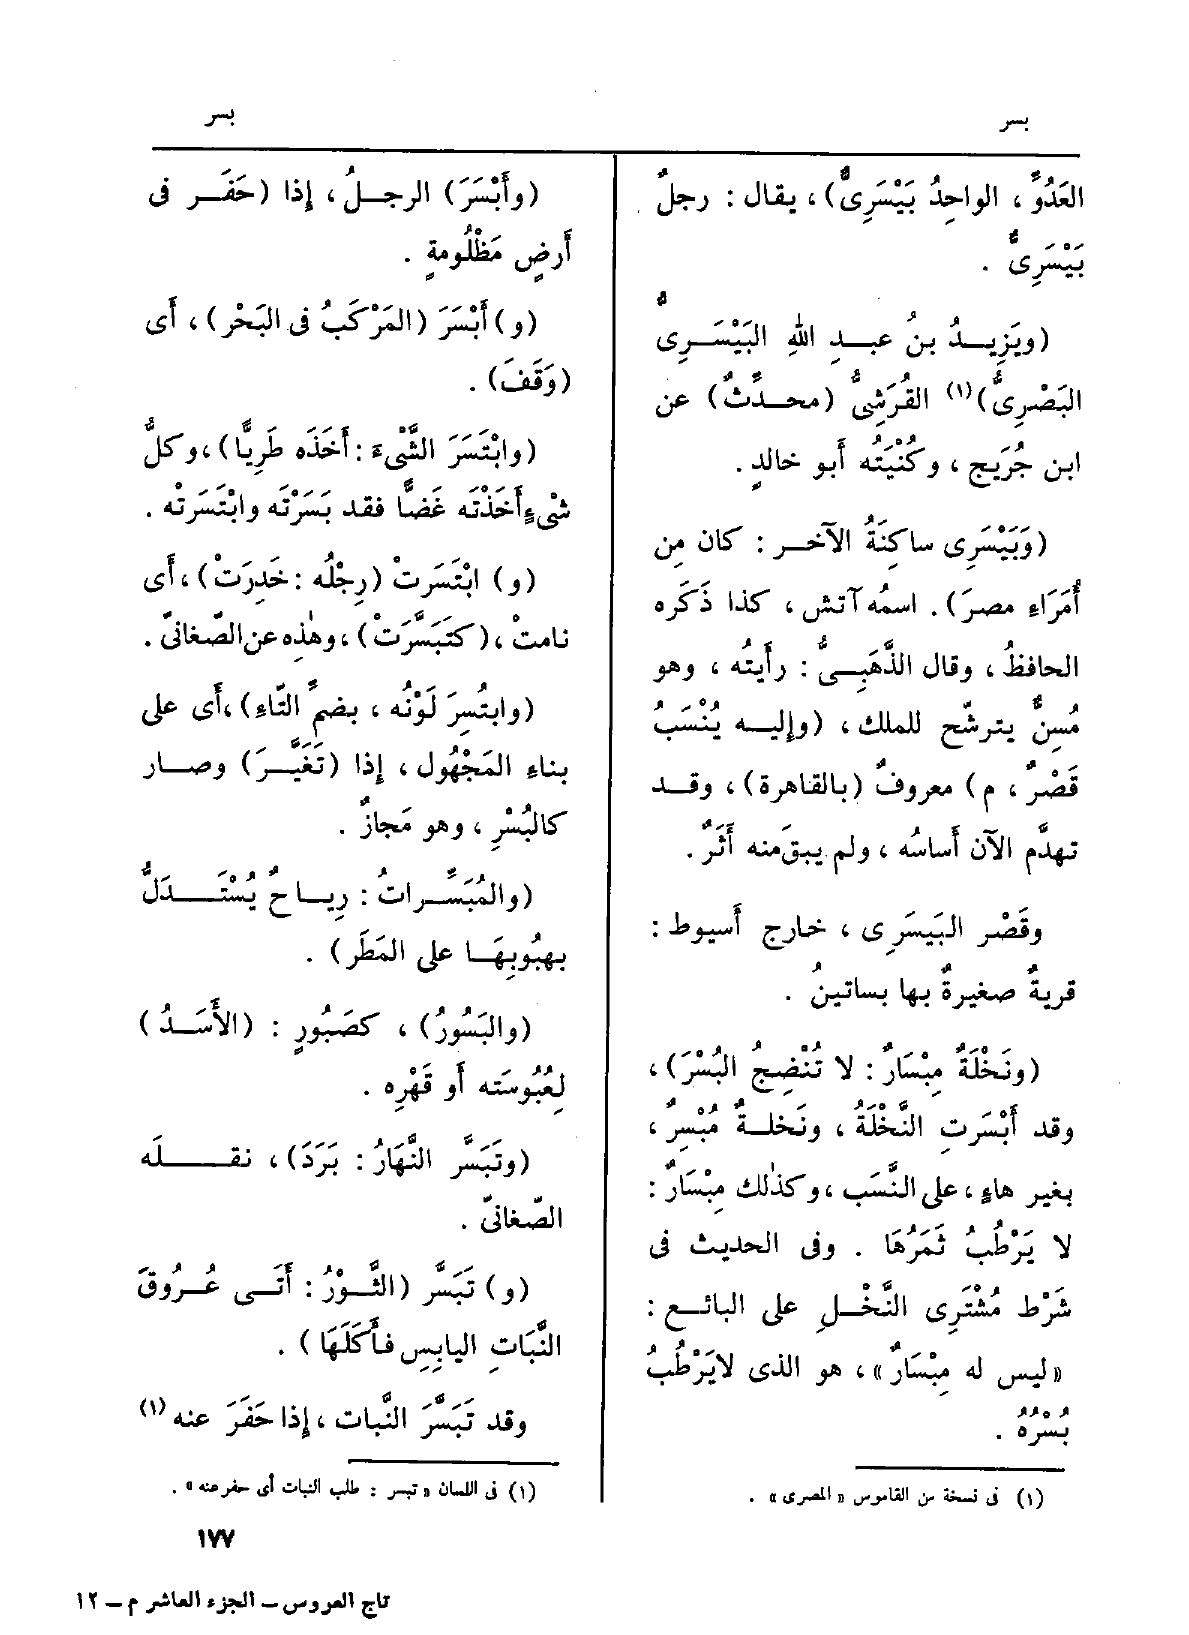 بسر
بسر
العَدُوَّ ، الواحِدُ بَيْسَرِىٌّ) ، يقال : رجلٌ
بَيْسَرِىٌّ .
(ويَزِيــدُ بنُ عبــدِ اللهِ البَيْسَــرِىُّ
البَصْرِىُّ)(١) القُرَشِىُّ (محــدِّثٌ) عن
ابن جُرَيج ، وكُنْيَتُه أَبو خالدٍ .
(وَبَيْسَرِى ساكِنَةُ الآخــر : كان مِن
أُمَرَاءِ مصرَ) . اسمُه آتش ، كذا ذَكَره
الحافظُ ، وقال الذَّهَبِــىُّ : رأَيتُه ، وهو
مُسِنٌّ يترشّح للملك ، (وإليــه يُنْسَبُ
قَصْرٌ ، م) معروفٌ (بالقاهرة) ، وقــد
تهدَّم الآن أَساسُه ، ولم يبقَ منه أَثَرٌ .
وقَصْر البَيسَرِى ، خارج أَسيوط :
قريةٌ صغيرةٌ بها بساتينُ .
(ونَخْلَةٌ مِبْسَارٌ : لا تُنْضِجُ البُسْرَ) ،
وقد أَبْسَرتِ النَّخْلَةُ ، ونَخلــةٌ مُبْسِرٌ ،
بغير هاءٍ ، على النَّسَب ، وكذٰلك مِبْسَارٌ :
لا يَرْطُبُ ثَمَرُهَا . وفى الحديث فى
شَرْط مُشْتَرِى النَّخْــلِ على البائــع :
«ليس له مِبْسَارٌ» ، هو الذى لا يَرْطُبُ
بُسْرُهُ .
(١) فى نسخة من القاموس «المصرى» .
(وأَبْسَرَ) الرجــلُ ، إذا (حَفَــر فى
أَرضٍ مَظْلُومةٍ .
(و) أَبْسَرَ (المَرْكَبُ فى البَحْر) ، أَى
(وَقَفَ) .
(وابْتَسَرَ الشَّىْءَ : أَخَذَه طَرِيًّا) ، وكلُّ
شىْءٍ أَخَذْتَه غَضًّا فقد بَسَرْتَه وابْتَسَرْتَه .
(و) ابْتَسَرتْ (رِجْلُه : خَدِرَتْ) ، أَى
نامتْ ، (كتَبَسَّرَتْ) ، وهٰذِه عن الصّغانىّ .
(وابتُسِرَ لَوْنُه ، بضمِّ التّاءِ) ، أَى على
بناءِ المَجْهُول ، إذا (تَغَيَّــرَ) وصــار
كالبُسْرِ ، وهو مَجازٌ .
(والمُبَسِّــراتُ : رِيــاحٌ يُسْتَــــدَلُّ
بهبُوبِهَــا على المَطَر) .
(والبَسُورُ) ، كصَبُورٍ : (الأَسَــدُ)
لِعُبُوسَته أَو قَهْرِه .
(وتَبَسَّر النَّهَارُ : بَرَدَ) ، نقــــله
الصّغانىّ .
(و) تَبَسَّر (الثَّــوْرُ : أَتَــى عُــرُوقَ
النَّبَاتِ اليابِسِ فأَكَلَهَا) .
وقد تَبَسَّرَ النَّبات ، إذا حَفَرَ عنه (١)
(١) فى اللسان «تبسر : طلب النبات أى حفر عنه» .
١٧٧
تاج العروس ــ الجزء العاشر م ــ ١٢